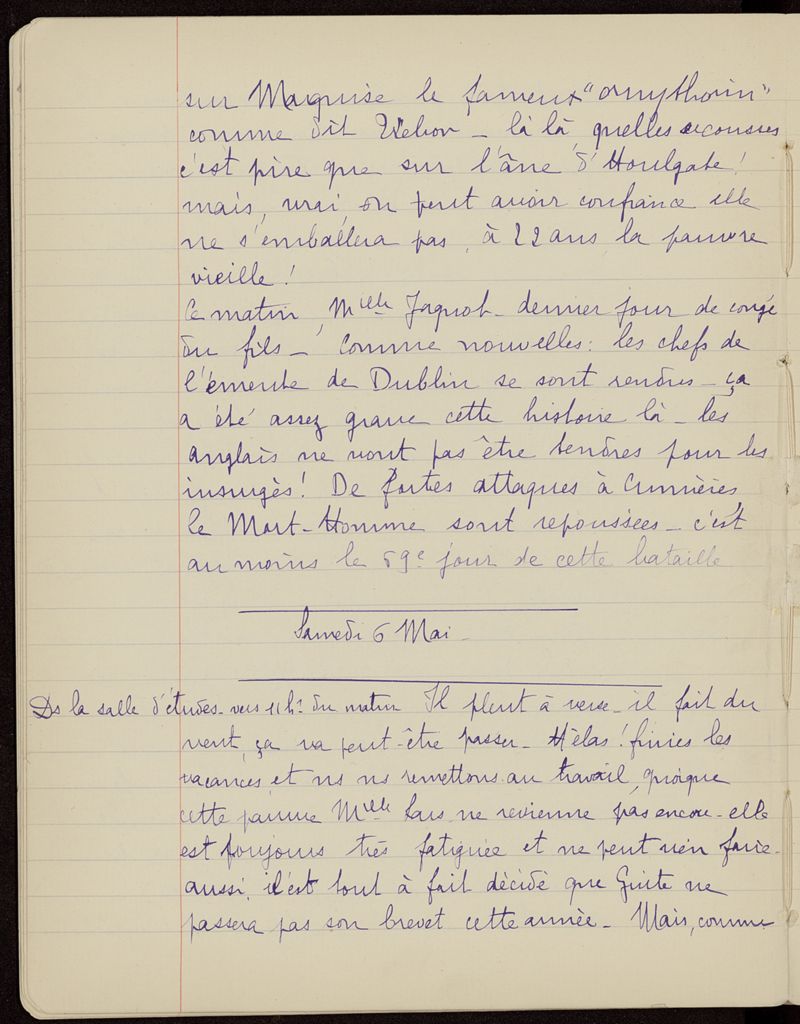 sur Marquise le fameux "ornythorin"
comme dit - là là, quelles secousses
c'est pire que sur l'âne d'Houlgate!
mais, vrai, on peut avoir confiance elle
ne s'emballera pas, à 22 ans la pauvre
vieille!
Ce matin, Mlle Jaquot - dernier jour de congé
du fils - Comme nouvelles: les chefs de
l'émeute de Dublin se sont rendus - ça
a été assez grave cette histoire là - les
anglais ne vont pas être tendres pour les
insurgés! De fortes attaques à Cumières,
le Mort-Homme sont repoussées - c'est
au moins le 69e jour de cette bataille
Samedi 6 Mai -
Ds la salle d'études - vers 11h du matin Il pleut à verse - il fait du
vent, ça va peut-être passer - Hélas! finies les
vacances, et ns ns remettons au travail, quoique
cette pauvre Mlle ne revienne pas encore - elle
est toujours très fatiguée et ne peut rien faire -
aussi, il est tout à fait décidé que Guite ne
passera pas son brevet cette année - Mais, comme